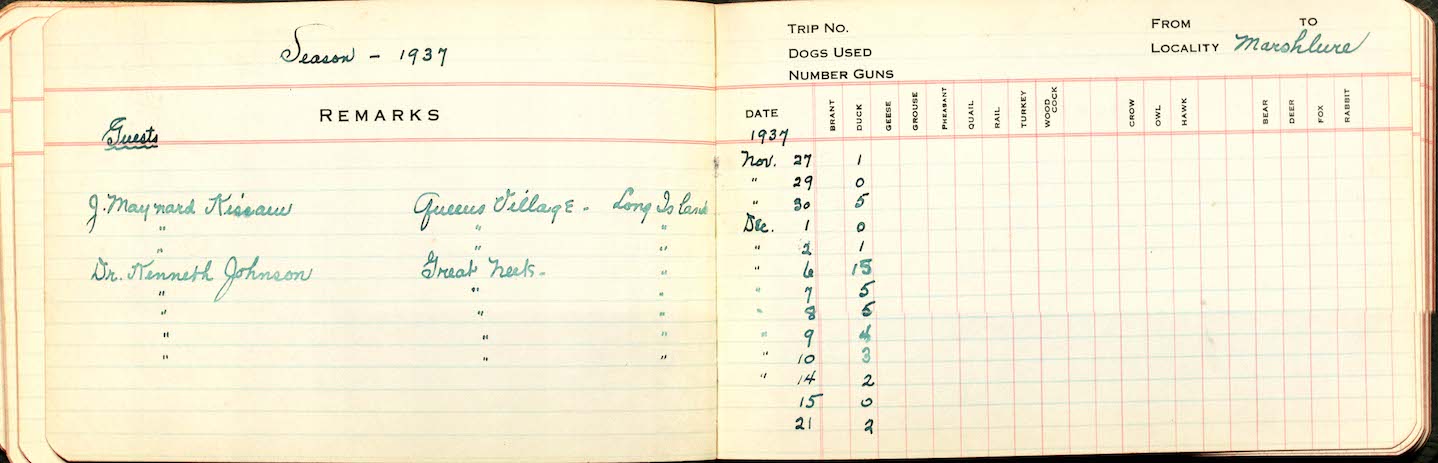 Season - 1937
REMARKS
Guests
J. Maynard Kissam Queens Village - Long Island
" " "
" " "
Dr. Kenneth Johnson Great Neck - "
" " "
" " "
" " "
" " "
TRIP NO. FROM TO
DOGS USED LOCALITY Marshlure
NUMBER GUNS
DATE BRANT DUCK GEESE GROUSE PHEASANT QUAIL RAIL TURKEY WOOD COCK CROW OWL HAWK BEAR DEER FOX RABBIT
1937
Nov. 27 1
" 29 0
" 30 5
Dec. 1 0
" 2 1
" 6 15
" 7 5
" 8 5
" 9 4
" 10 3
" 14 2
15 0
21 2